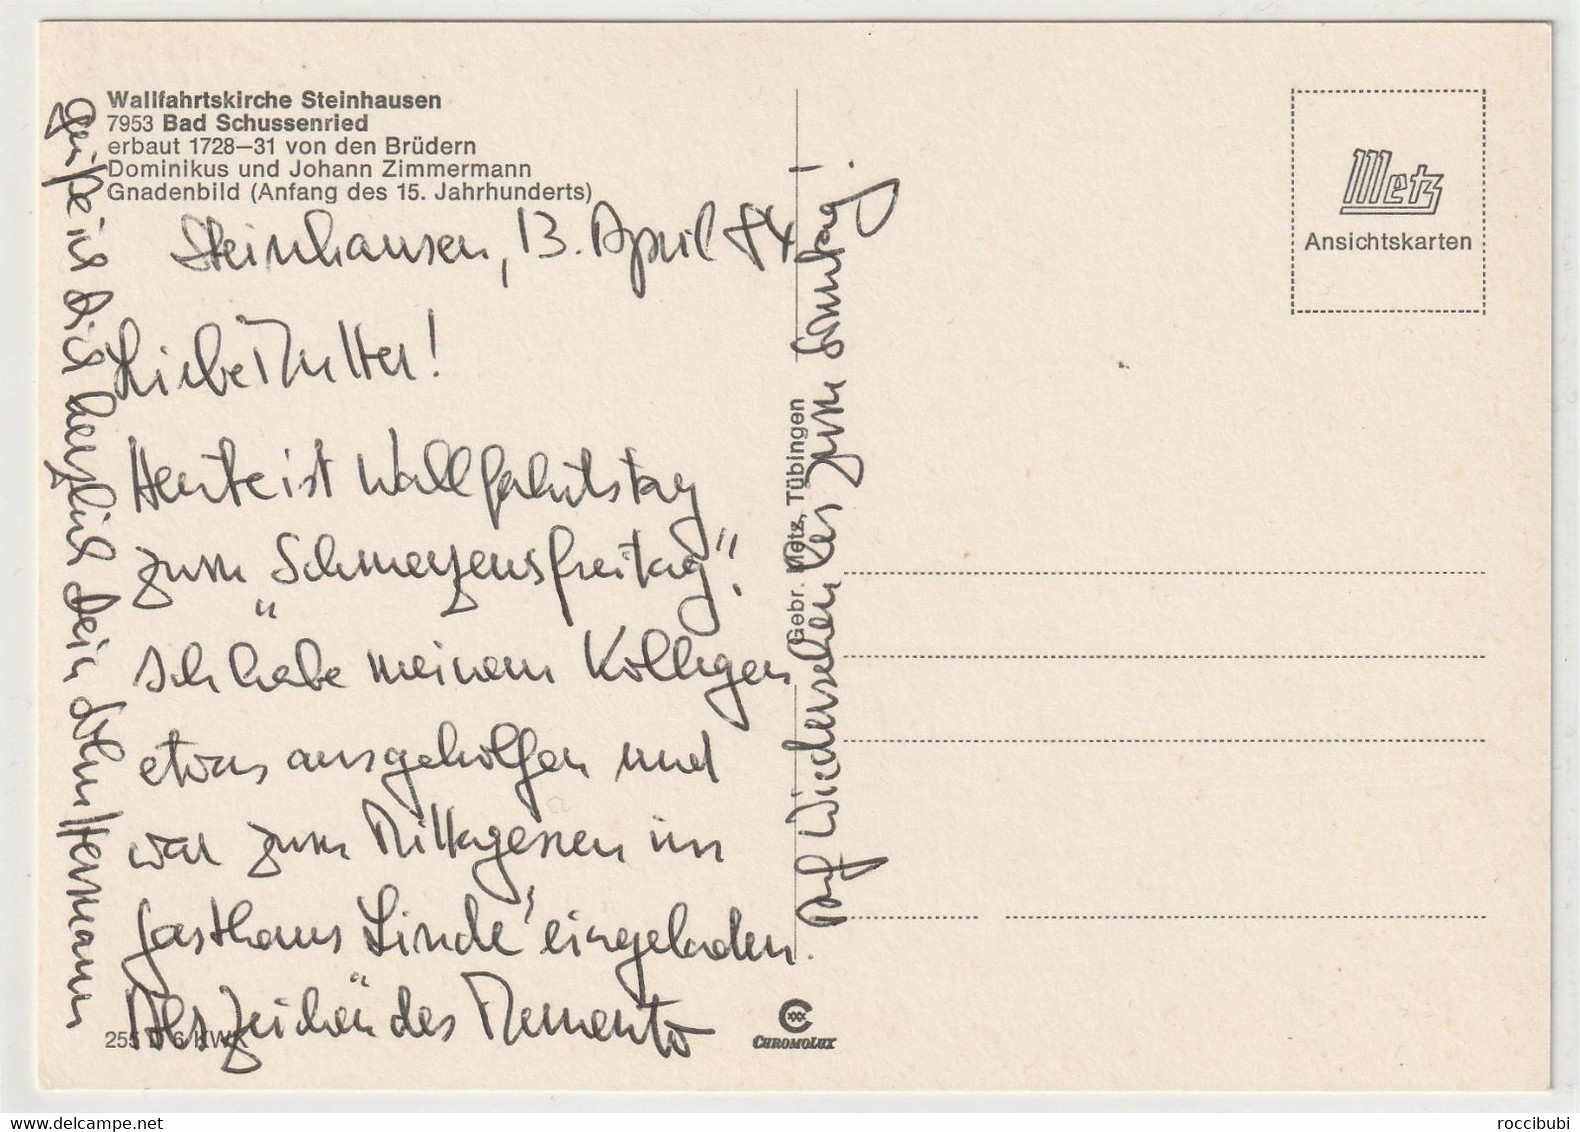 Wallfahrtskirche Steinhausen
7953 Bad Schussenried
erbaut 1728—31 von den Brüdern
Dominikus und Johann Zimmermann
Gnadenbild (Anfang des 15. Jahrhunderts)
Steinhausen, 13. April 84
Liebe Mutter!
Heute ist Wallfahrtstag
zum „Schmerzensfreitag".
Ich habe meinem Kollegen
etwas ausgeholfen und
war zum Mittagessen im
Gasthaus „Linde" eingeladen.
Als Zeichen des Memento
grüße ich Dich herzlich Dein Sohn Hermann
Auf Wiedersehen bis zum Sonntag!
Gebr. Metz, Tübingen
Metz
Ansichtskarten
255 D 6 KWK
CHROMOLUX
roccibubi